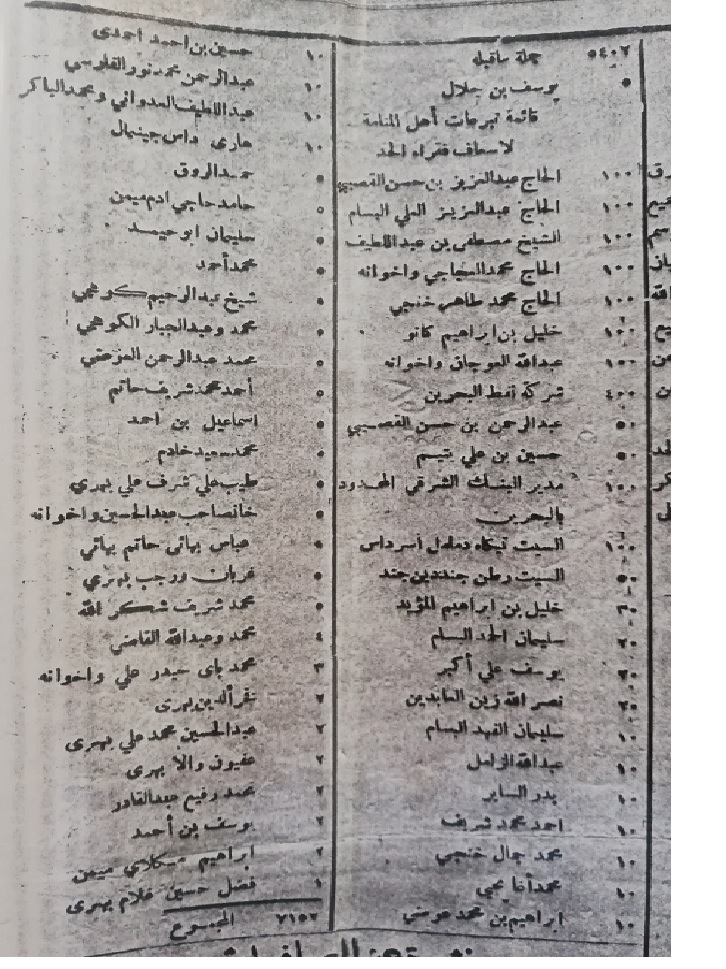 ٥٤٠٢ جملة ما قبله
٥ يوسف بن جلال
قائمة تبرعات أهل المنامة
لاسعاف فقراء الحد
١٠٠ الحاج عبدالعزيز بن حسن القصيبي
١٠٠ الحاج عبدالعزيز العلي البسام
١٠٠ الشيخ مصطفى بن عبداللطيف
١٠٠ الحاج محمد العجاجي واخوانه
١٠٠ الحاج محمد طاهر خنجي
١٠٠ خليل بن ابراهيم كانو
١٠٠ عبدالله العوجان واخوانه
٤٠٠ شركة نفط البحرين
٥٠ عبدالرحمن بن حسن القصيبي
٥٠ حسين بن علي يتيم
١٠٠ مدير البنك الشرقي المحدود
بالبحرين
١٠٠ السيت
٥٠ السيت
٣٠ خليل بن ابراهيم المؤيد
٢٠ سليمان الحمد البسام
٢٠ يوسف علي أكبر
٢٠ نصر الله زين العابدين
١٠ سليمان الفهد البسام
١٠ عبدالله الزامل
١٠ بدر الساير
١٠ احمد محمد شريف
١٠ محمد جمال خنجي
١٠ محمد أغا يحيى
١٠ ابراهيم بن محمد عوضي
١٠ حسين بن احمد احمدي
١٠ عبدالرحمن محمد نور الفارسي
١٠ عبداللطيف العدواني ومحمد الباكر
١٠ داس
٥ حمد الروق
٥ حامد حاجي ادم ميمن
٥ سليمان ابو حيمد
٥ محمد أحمد
٥ شيخ عبدالرحيم كوهجي
٥ محمد وعبدالجبار الكوهجي
٥ محمد عبدالرحمن
٥ أحمد محمد شريف حاتم
٥ اسماعيل بن احمد
٥ محمد سعيد خادم
٥ طيب علي شرف علي بهري
٥ خانصاحب عبدالحسين واخوانه
٥ عباس بهائى حاتم بهائي
٥ قربان ورجب بهري
٥ محمد شريف شكر الله
٤ محمد وعبدالله القاضي
٣ محمد باي حيدر علي واخوانه
٢ بهرى
٢ عبدالحسين محمد علي بهرى
٢ والا بهرى
٢ محمد رفيع عبدالقادر
٢ يوسف بن أحمد
٢ ابراهيم ميمن
١ فضل حسين غلام بهرى
٧١٥٢ المجموع